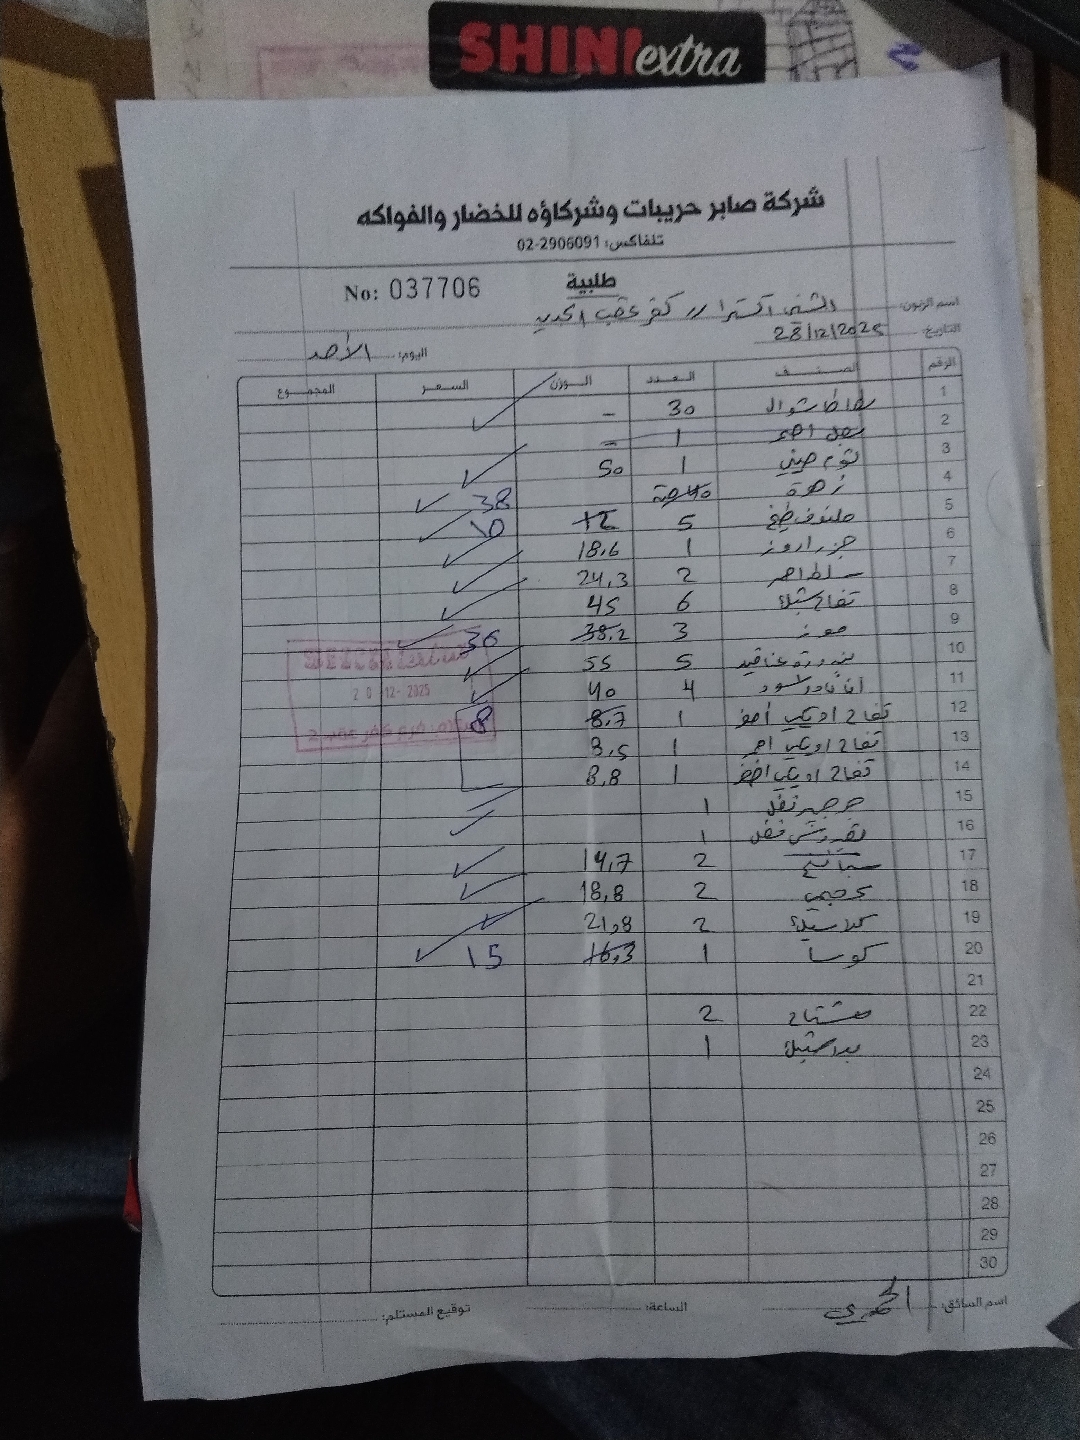 SHINI extra
شركة صابر حريبات وشركاؤه للخضار والفواكه
تلفاكس: 02-2906091
No: 037706 طلبية
اسم الزبون: الشني اكسترا // كفر عقب الجديد
التاريخ: 28/12/2025
اليوم: الأحد
الرقم الصنف العدد الوزن السعر المجموع
1 بطاطا شوال 30 -
2 بصل احمر 1 -
3 ثوم صيني 1 50
4 زهرة 38
5 ملفوف 5 12 10
6 جزر اروز 1 18,6
7 احمر 2 24,3
8 تفاح ستيلا 6 45
9 موز 3 38.2 36
10 بندورة عناقيد 5 55
11 اسود 4 40
12 تفاح اصفر 1 8,7 8
13 تفاح احمر 1 8,5
14 تفاح اخضر 1 8,8
15 جرجير 1
16 1
17 سبانخ 2 14,7
18 2 18,8
19 2 21,8
20 كوسا 1 16,3 15
21
22 مشتاح 2
23 1
24
25
26
27
28
29
30
اسم السائق: الساعة: توقيع المستلم:
28-12-2025